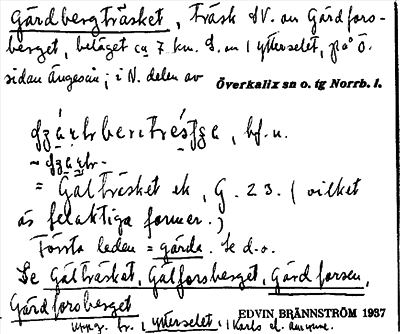 Gärdbergträsket, träsk SV. om Gärdfors-
berget, beläget ca 7 km. S. om Ytterselet, på Ö.
sidan Ängesån; i N. delen av Överkalix sn o. tg Norrb. l.
bf. u.
= Galträsket ek, G. 23. (vilket
äs felaktiga former.)
Första leden = gärda. Se d.o.
Se Gälträsket, Gälforsberget, Gärdforsen,
Gärdforsberget
EDVIN BRÄNNSTRÖM 1937
Uppg. fr. Ytterselet,